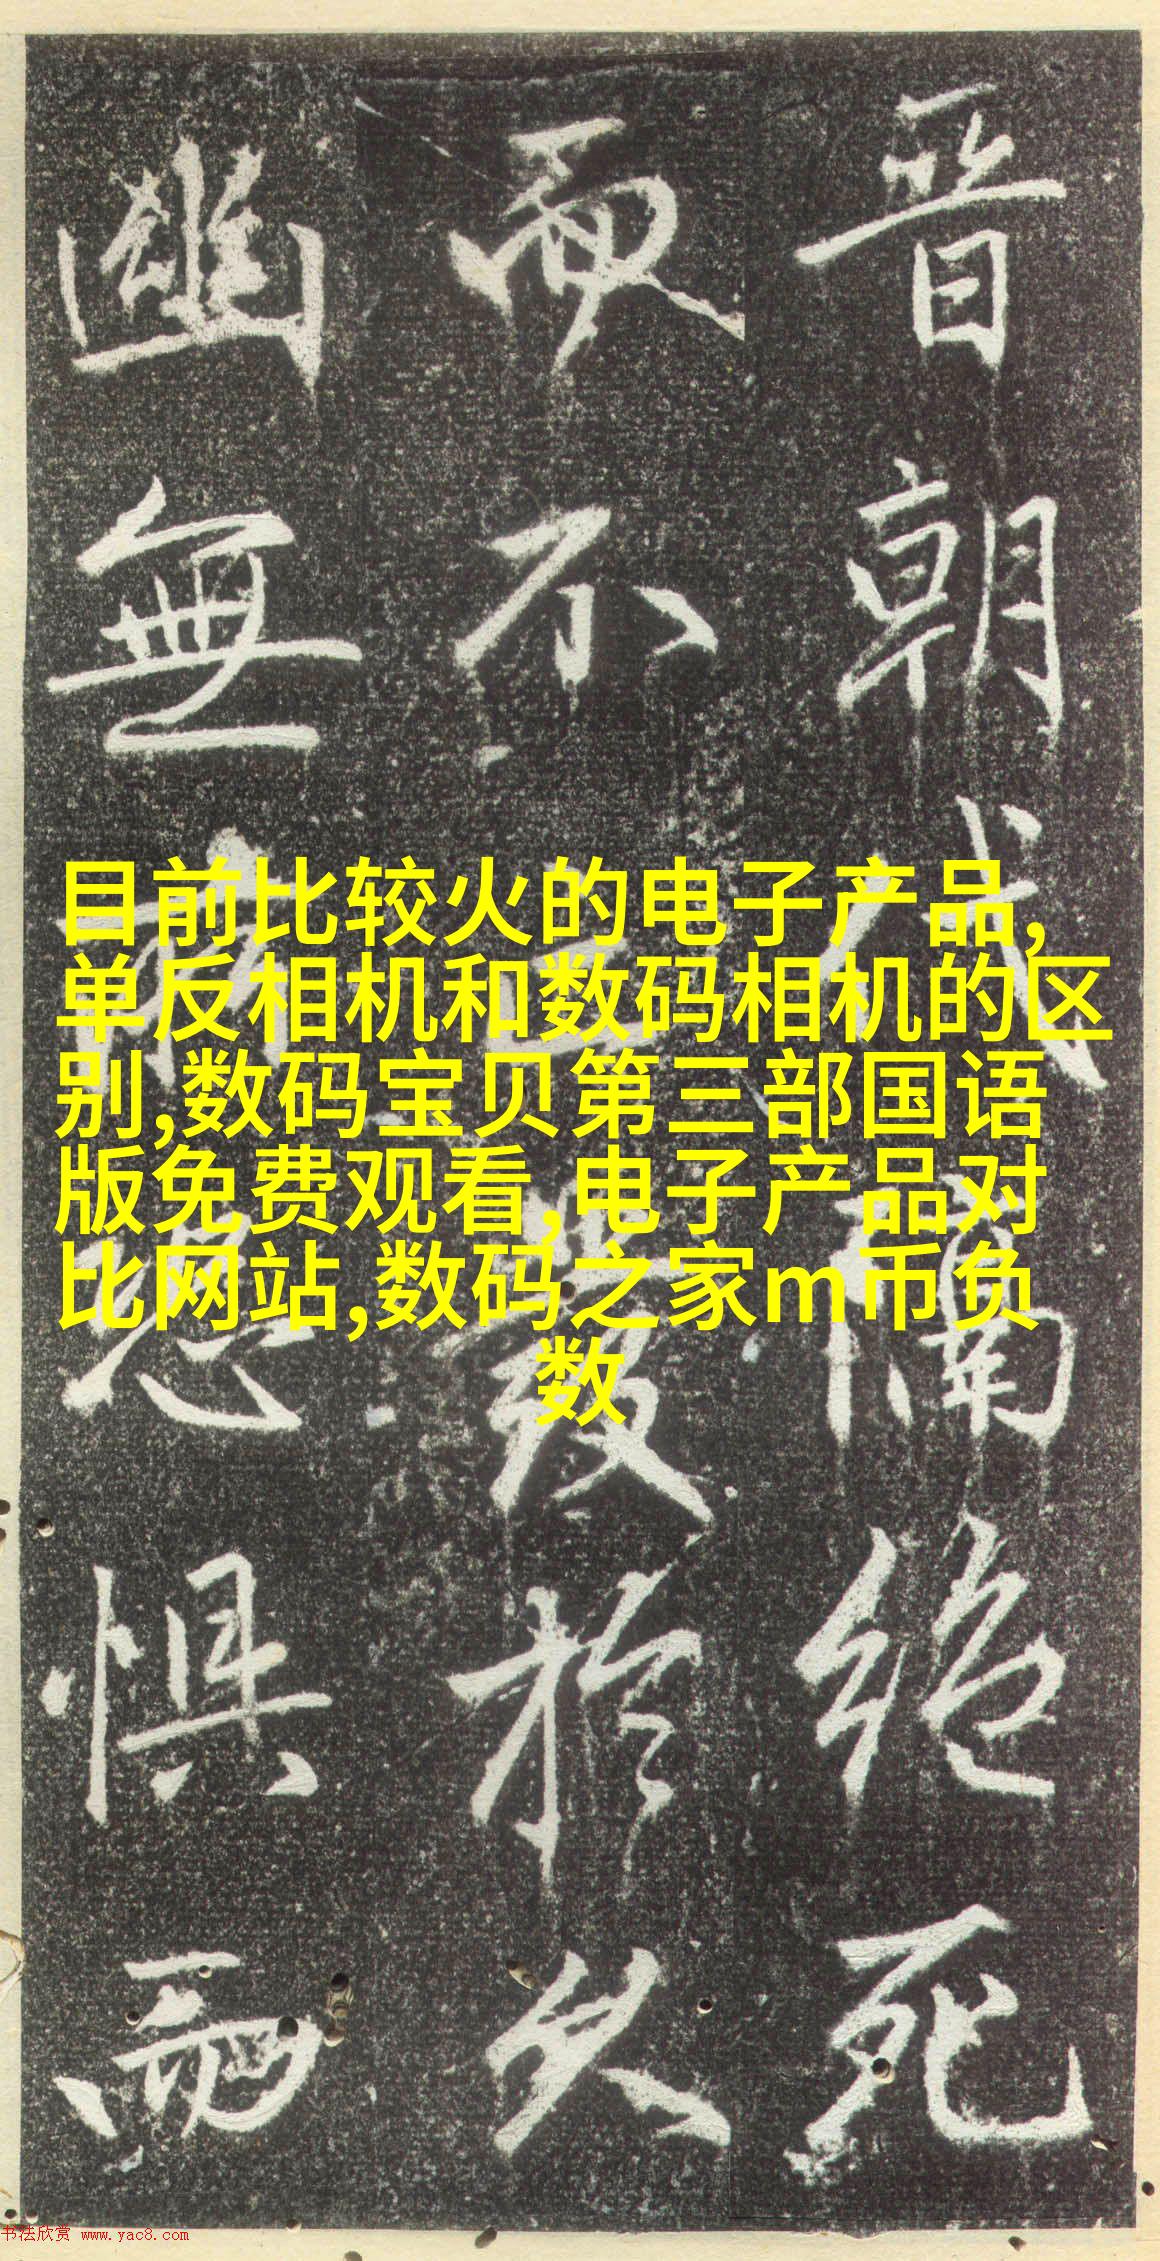 朝代隔絕死
不於久
無恐懼而
目前比较火的电子产品,
单反相机和数码相机的区
别,数码宝贝第三部国语
版免费观看,电子产品对
比网站,数码之家m币负
数
书法欣赏 www.yac8.com